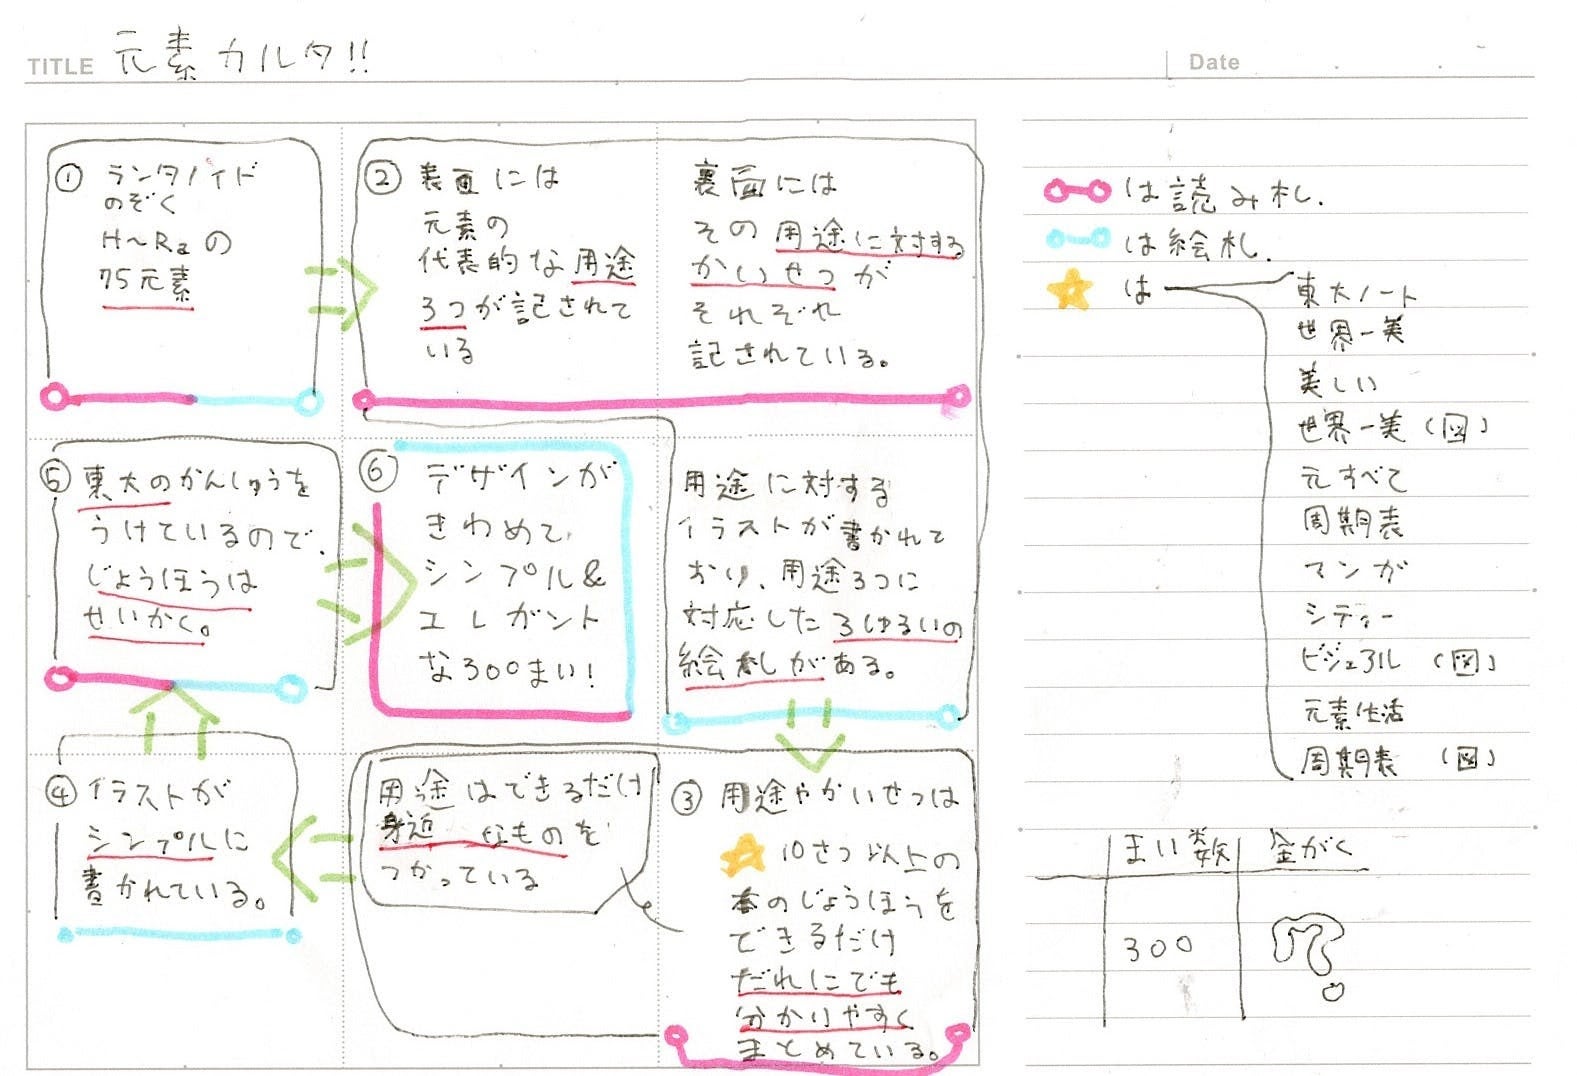 TITLE 元素カルタ!!
Date
① ランタノイド
のぞく
H~Raの
75元素
② 表面には
元素の
代表的な用途
3つが記されて
いる
裏面には
その用途に対する
かいせつが
それぞれ
記されている。
用途に対する
イラストが書かれて
おり、用途3つに
対応した3しゅるいの
絵札がある。
③ 用途やかいせつは
10さつ以上の
本のじょうほうを
できるだけ
だれにでも
分かりやすく
まとめている。
用途はできるだけ
身近なものを
つかっている
④ イラストが
シンプルに
書かれている。
⑤ 東大のかんしゅうを
うけているので、
じょうほうは
せいかく。
⑥ デザインが
きわめて、
シンプル&
エレガント
な300まい!
は読み札.
は絵札.
は
東大ノート
世界一美
美しい
世界一美(図)
元すべて
周期表
マンガ
シティー
ビジュアル(図)
元素生活
周期表(図)
まい数 金がく
300 ?